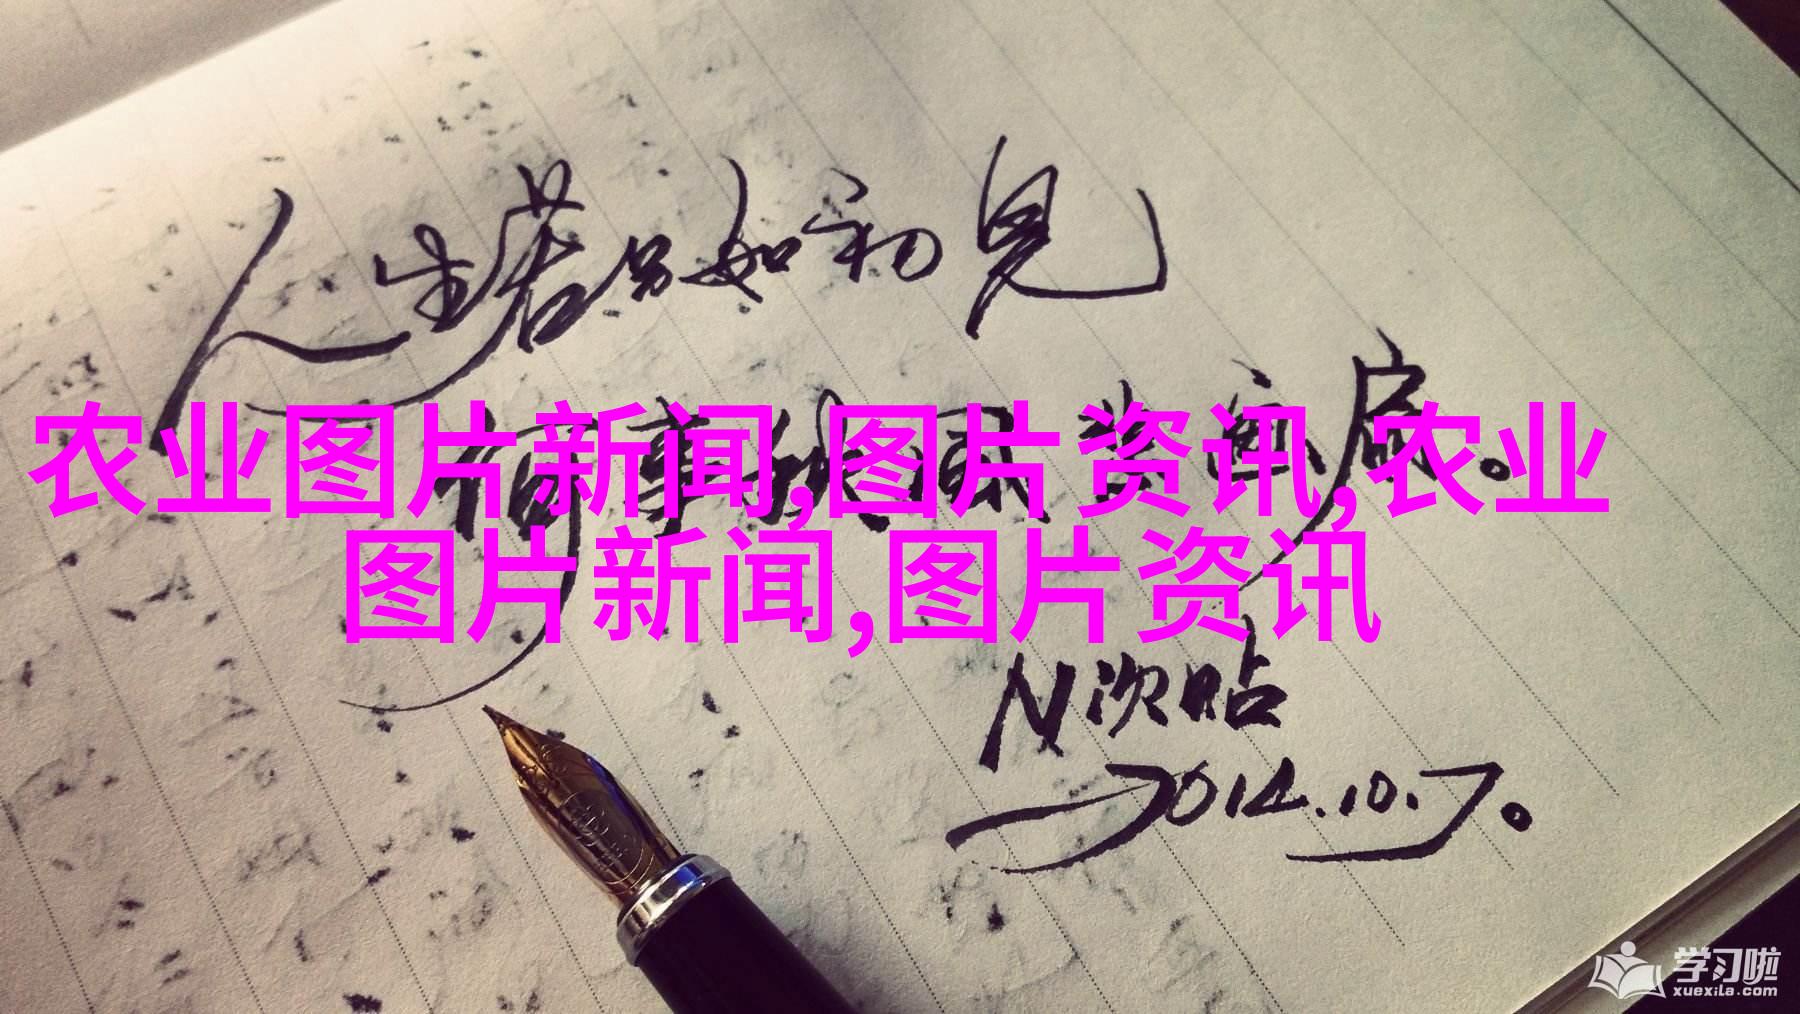 人生若只如初见
何事秋风悲画扇。
农业图片新闻,图片资讯,农业
图片新闻,图片资讯
N次贴
2014.10.7。
学习啦
xuexila.com